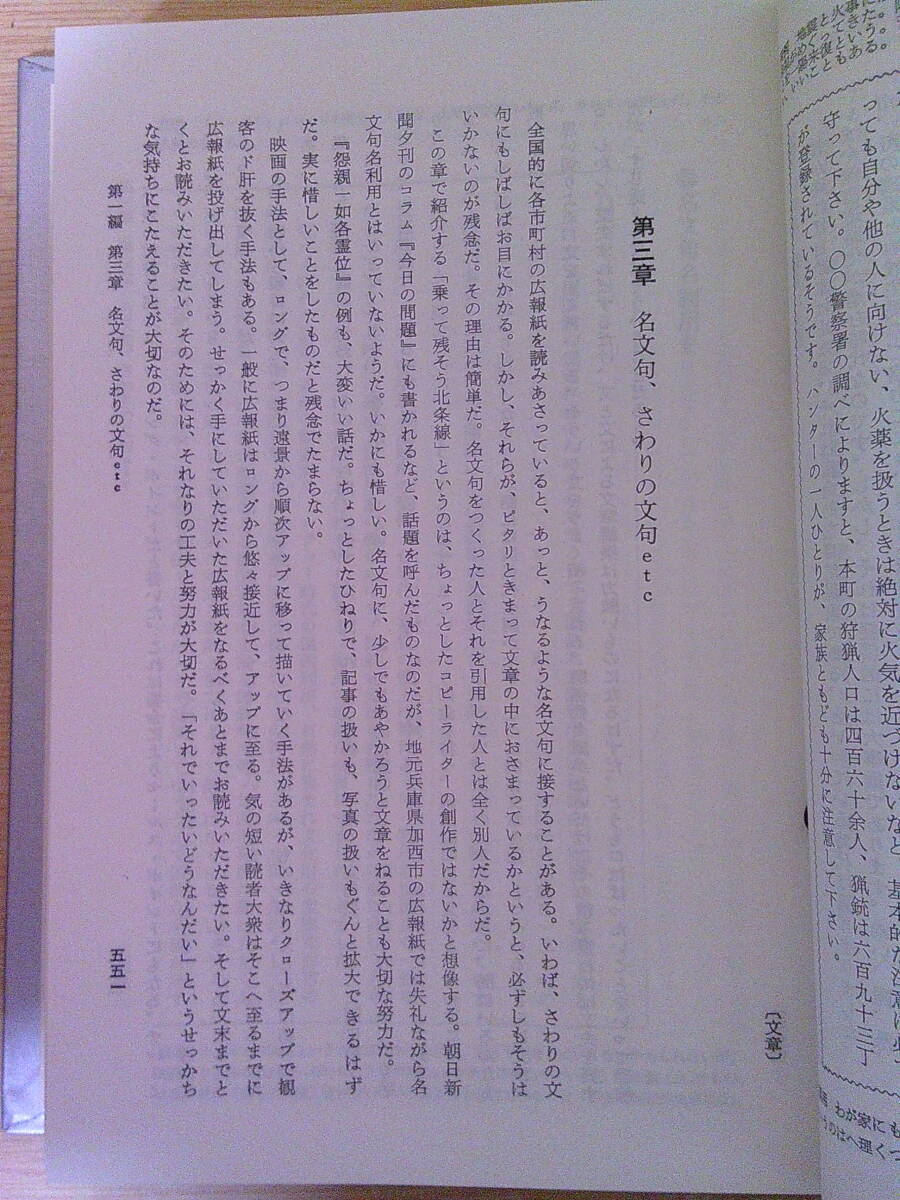 っても自分や他の人に向けない、火薬を扱うときは絶対に火気を近づけないなど、基本的な注意は必
守って下さい。〇〇警察署の調べによりますと、本町の狩猟人口は四百六十余人、猟銃は六百九十三丁
が登録されているそうです。ハンターの一人ひとりが、家族ともども十分に注意して下さい。
〔文章〕
第三章　名文句、さわりの文句etc
全国的に各市町村の広報紙を読みあさっていると、あっと、うなるような名文句に接することがある。いわば、さわりの文
句にもしばしばお目にかかる。しかし、それらが、ピタリときまって文章の中におさまっているかというと、必ずしもそうは
いかないのが残念だ。その理由は簡単だ。名文句をつくった人とそれを引用した人とは全く別人だからだ。
この章で紹介する「乗って残そう北条線」というのは、ちょっとしたコピーライターの創作ではないかと想像する。朝日新
聞夕刊のコラム『今日の問題』にも書かれるなど、話題を呼んだものなのだが、地元兵庫県加西市の広報紙では失礼ながら名
文句名利用とはいっていないようだ。いかにも惜しい。名文句に、少しでもあやかろうと文章をねることも大切な努力だ。
『怨親一如各霊位』の例も、大変いい話だ。ちょっとしたひねりで、記事の扱いも、写真の扱いもぐんと拡大できるはず
だ。実に惜しいことをしたものだと残念でたまらない。
映画の手法として、ロングで、つまり遠景から順次アップに移って描いていく手法があるが、いきなりクローズアップで観
客のド肝を抜く手法もある。一般に広報紙はロングから悠々接近して、アップに至る。気の短い読者大衆はそこへ至るまでに
広報紙を投げ出してしまう。せっかく手にしていただいた広報紙をなるべくあとまでお読みいただきたい。そして文末までと
くとお読みいただきたい。そのためには、それなりの工夫と努力が大切だ。「それでいったいどうなんだい」というせっかち
な気持ちにこたえることが大切なのだ。
第一編　第三章　名文句、さわりの文句etc
五五一